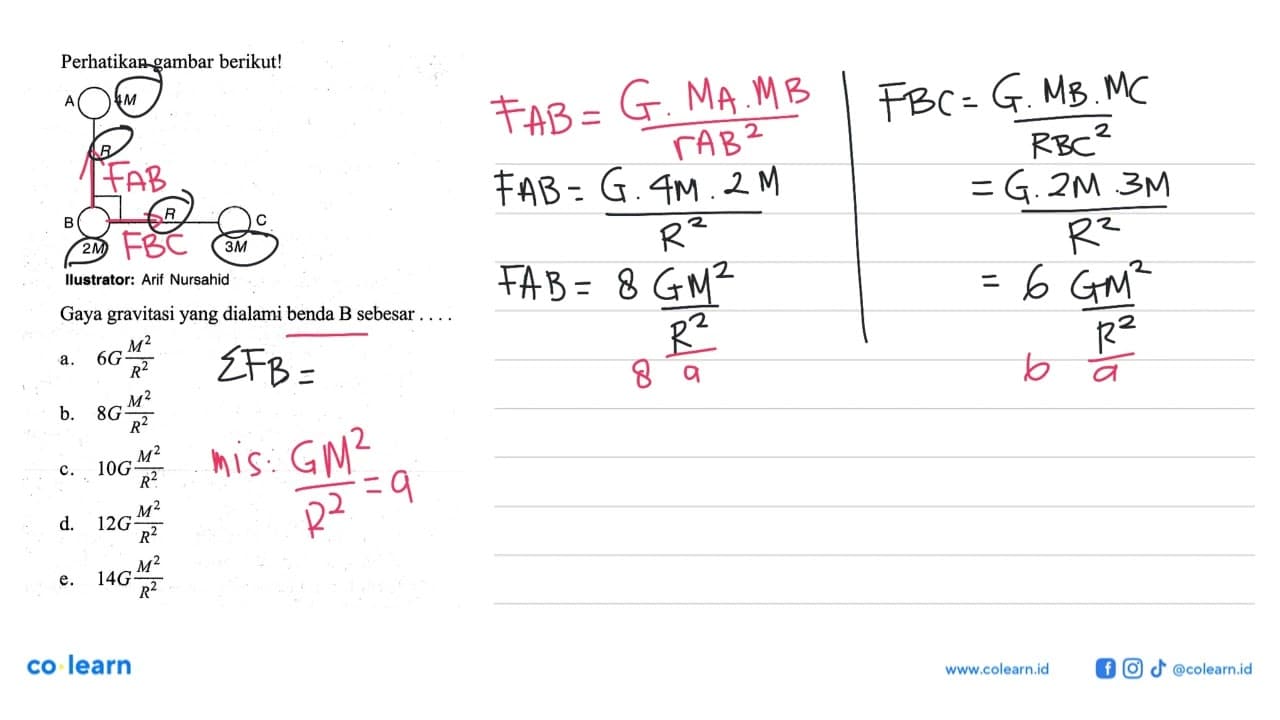 Perhatikan gambar berikut!
A 4M
R
FAB
B R C
2M FBC 3M
Ilustrator: Arif Nursahid
Gaya gravitasi yang dialami benda B sebesar . . . .
a. 6G M²/R²
b. 8G M²/R²
c. 10G M²/R²
d. 12G M²/R²
e. 14G M²/R²
ΣFB =
mis: GM²/R² = a
FAB = G. MA. MB / rAB²
FAB = G. 4M. 2M / R²
FAB = 8 GM²/R²
8 a
FBC = G. MB. MC / RBC²
= G. 2M .3M / R²
= 6 GM²/R²
6 a
co learn
www.colearn.id
@colearn.id